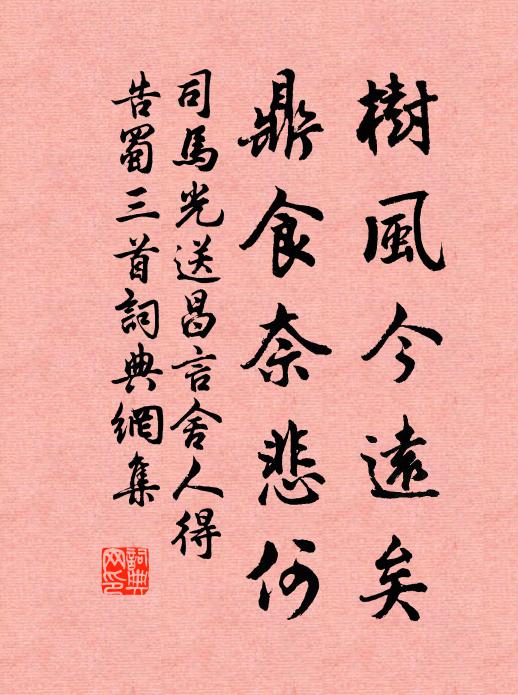 樹風今遠矣
鼎食奈悲何
司馬光送昌言舍人得
告蜀三首詞典網集
詞典網印